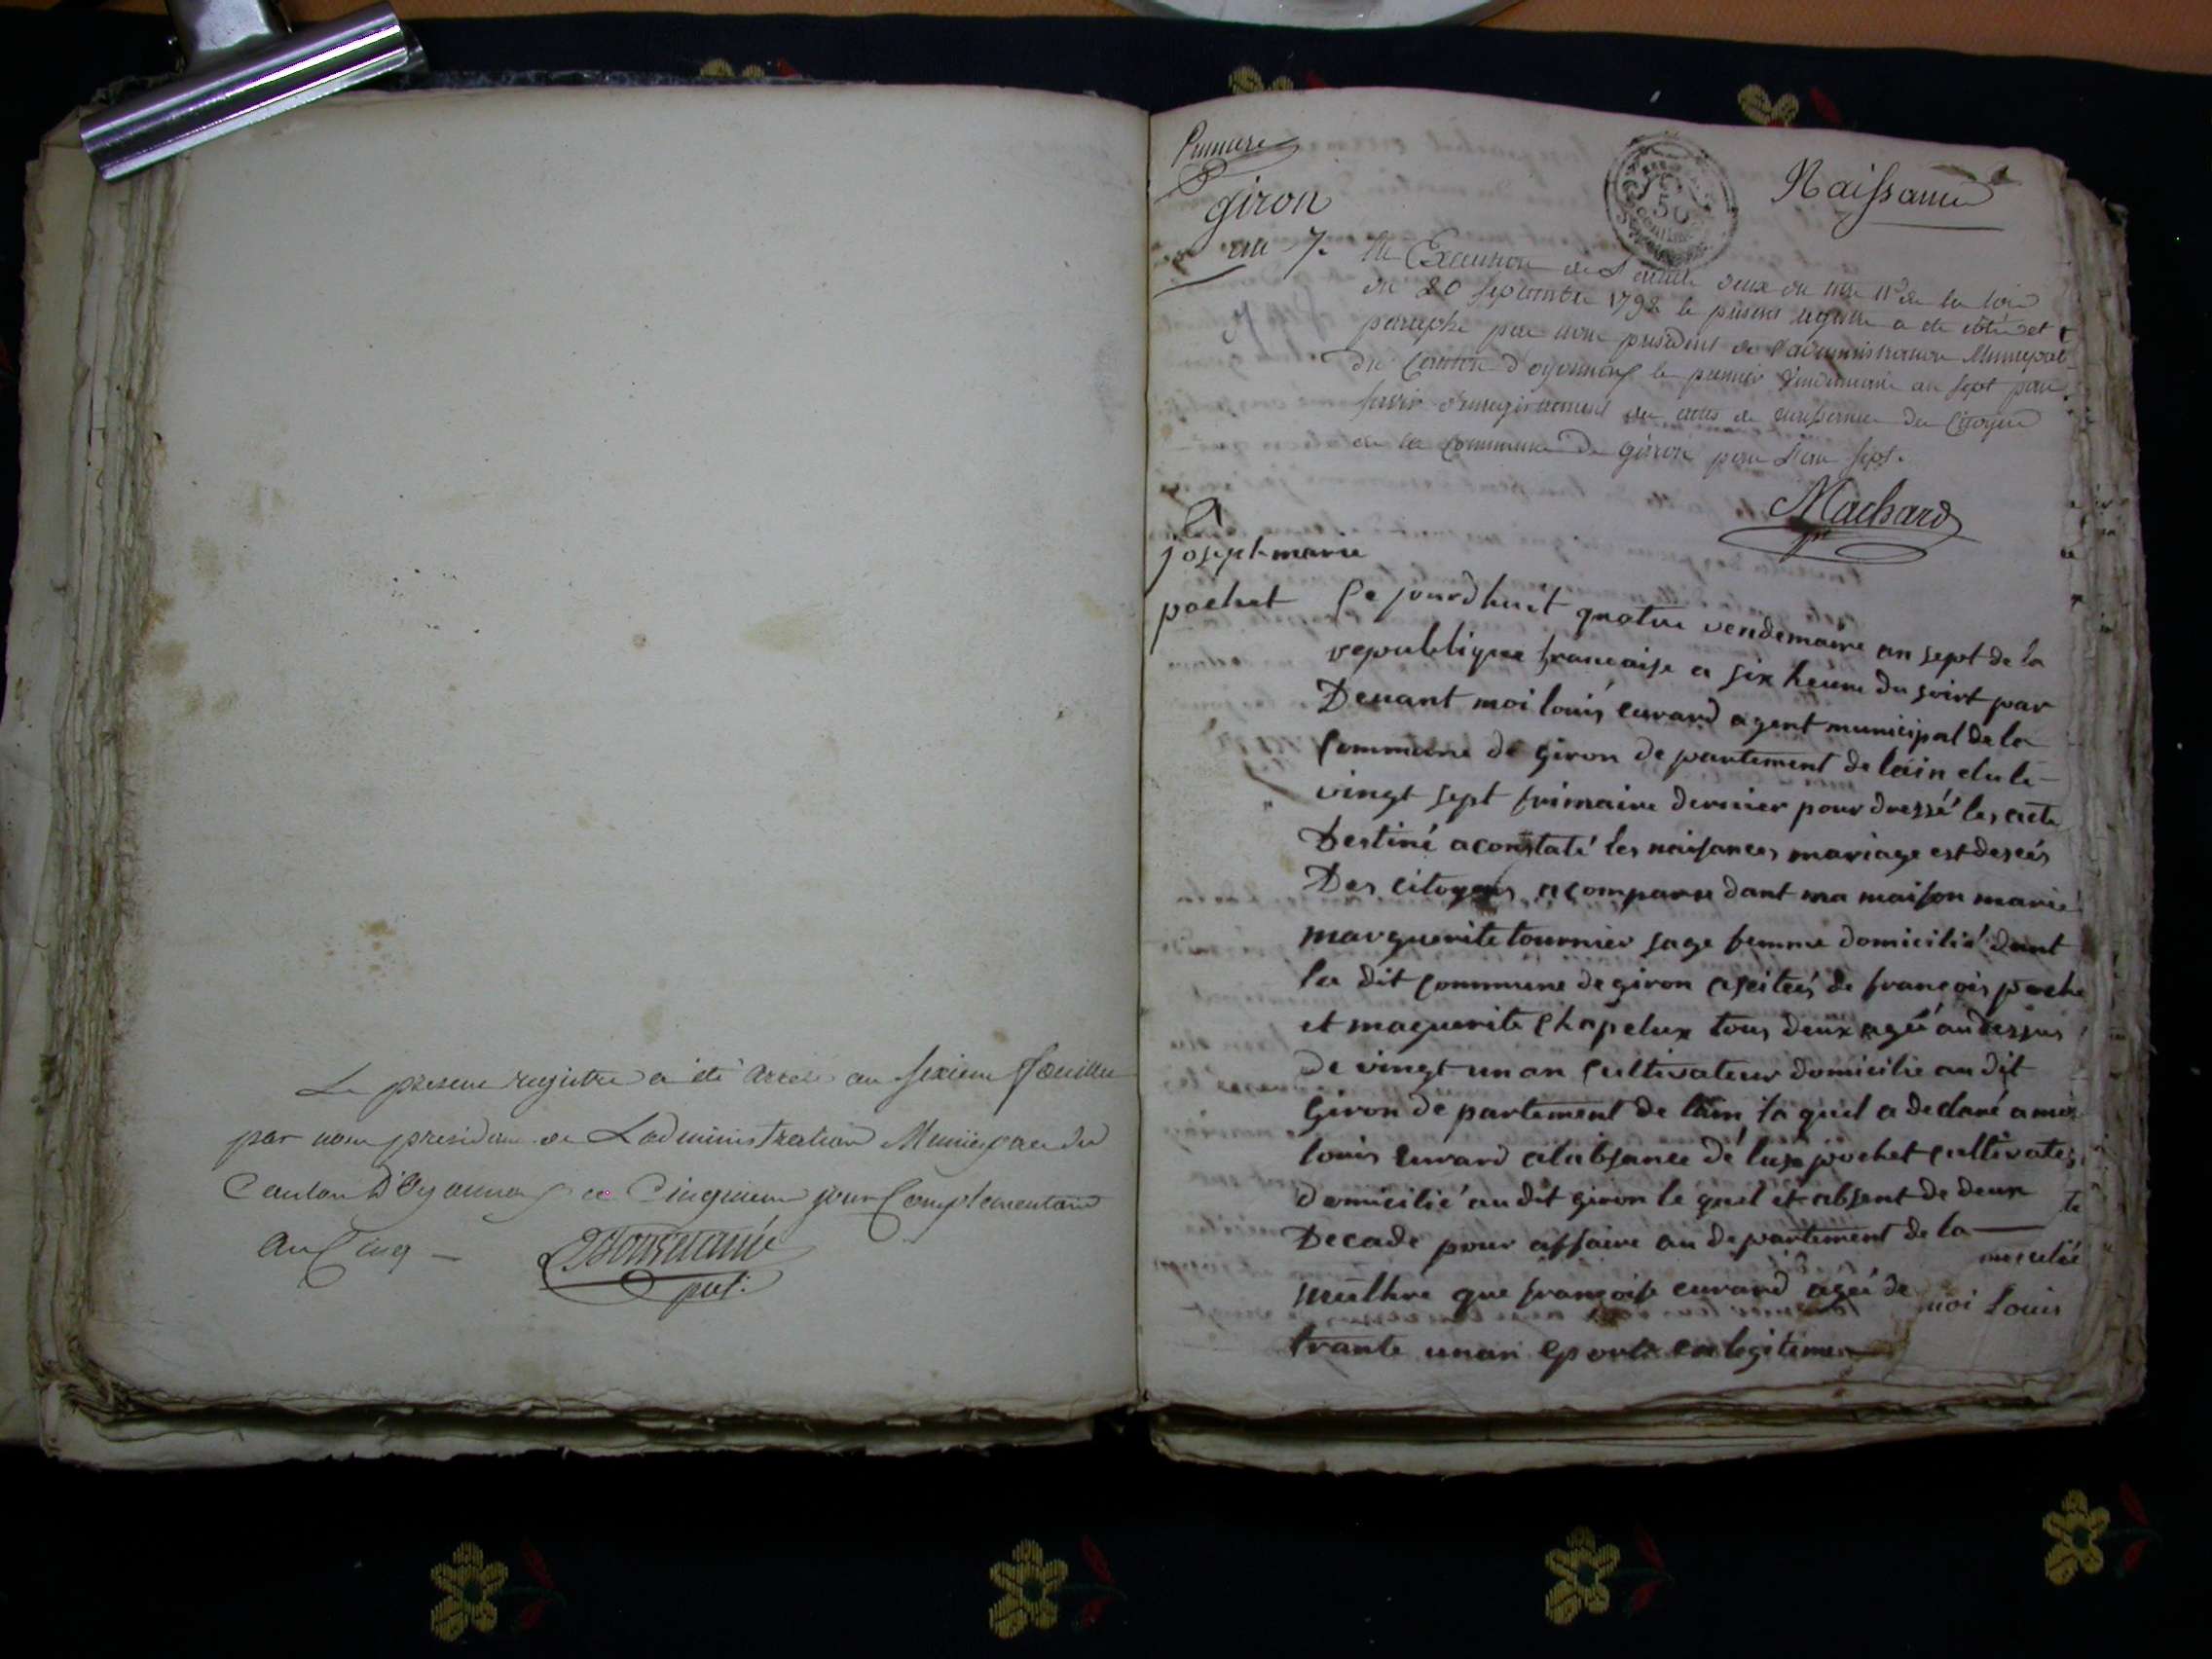 Le present registre a été arreté au sixieme feuillet
par nous president de Ladministration Municipale du
Canton D'Oyonnax ce Cinquieme jour Complementaire
an Cinq
Premiere
giron
an 7.
Naissance
En Execution de L'article deux du titre 11e de la loi
du 20 septembre 1792 le présent registre a été coté et
paraphé par nous président de l'administration Municipal
du Canton d'oyonnax le premier Vendemiaire an sept pour
servir d'enregistrement des actes de naissance des Citoyens
de la Commune de giron pour L'an sept.
Machard
joseph marie
pochet
Ce jourdhuit quatre vendemaire an sept de la
republique francaise a six heure du soirt par
Devant moi louis evrard agent municipal de la
commune de giron de partement de lain elu le
vingt sept frimaire dernier pour dressé les acte
Destiné a constaté les naisances mariage est deseés
Des citoyens a comparu dant ma maison marie
marguerite tournier sage femme domicilié dant
la dit commune de giron aseiteés de francois poche
et maguerite chapelux tous deux ageé audessus
De vingt un an cultivateur domicilie audit
Giron de partement de lain la quel a declaré a moi
louis evrard alabsance de pochet cultivateu
domicilié audit giron le quel et absent de deux
Decade pour affaire au departement de la
que francoise evrard ageé de
trante un an epouse en legitime
te
moi Louis